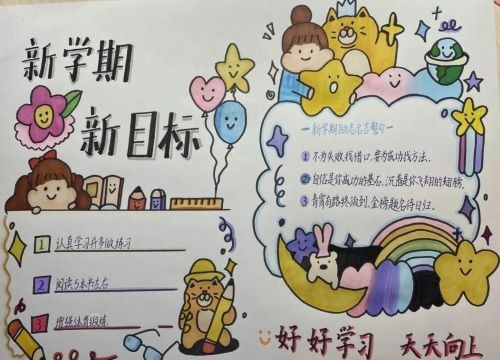 新学期
新目标
1 认真学习并多做练习
2 阅读5本书左右
3 增强体育锻炼
一新学期励志名言警句一
1 不为失败找借口,要为成功找方法.
2 自信是你成功的基石,沉着是你飞翔的翅膀,
3 青霄有路终须到,金榜题名待日归.
好好学习 天天向上